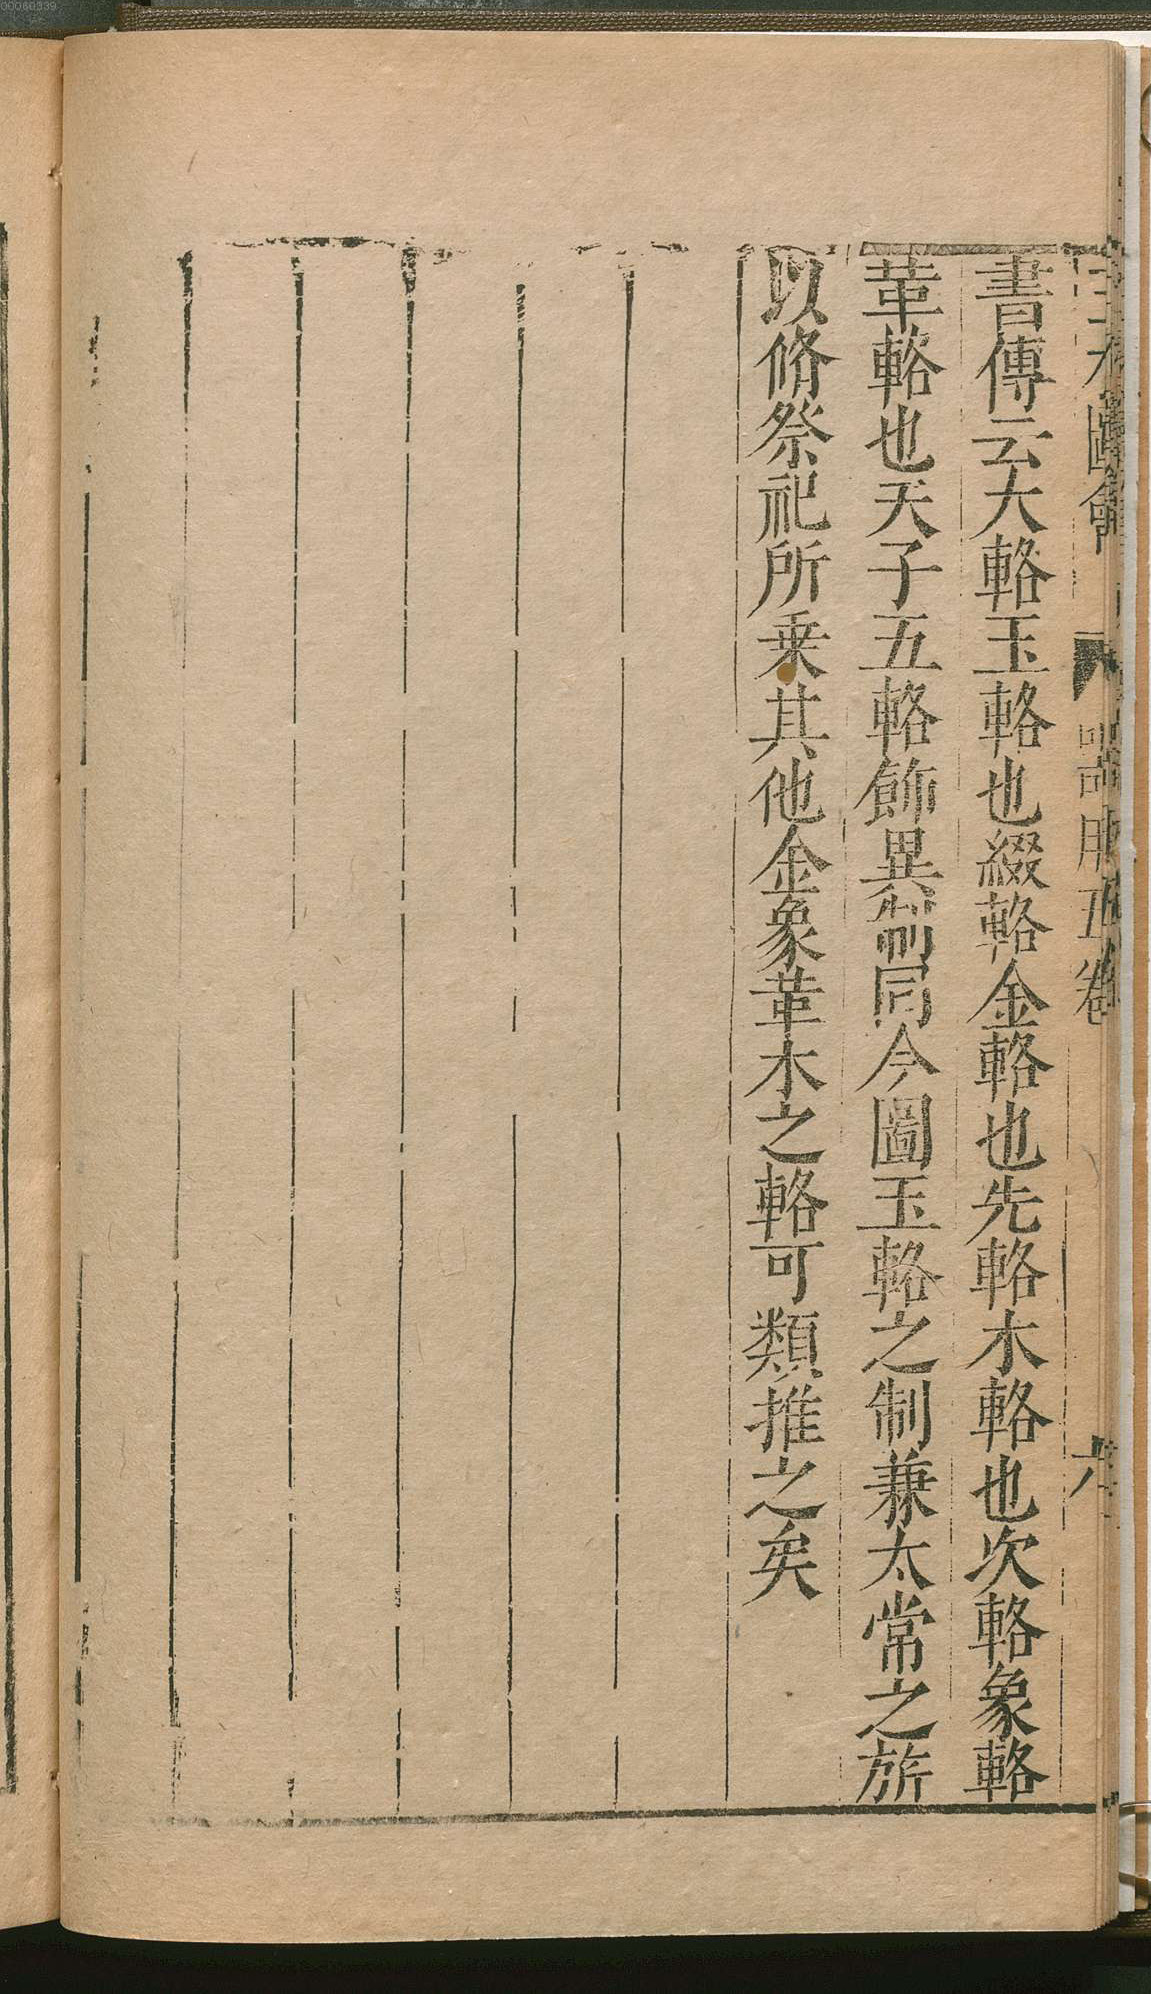 三才圖會
器用五卷
六
書傳云大輅玉輅也綴輅金輅也先輅木輅也次輅象輅
革輅也天子五輅飾異制同今圖玉輅之制兼太常之旂
以脩祭祀所乗其他金象革木之輅可類推之矣
00060339